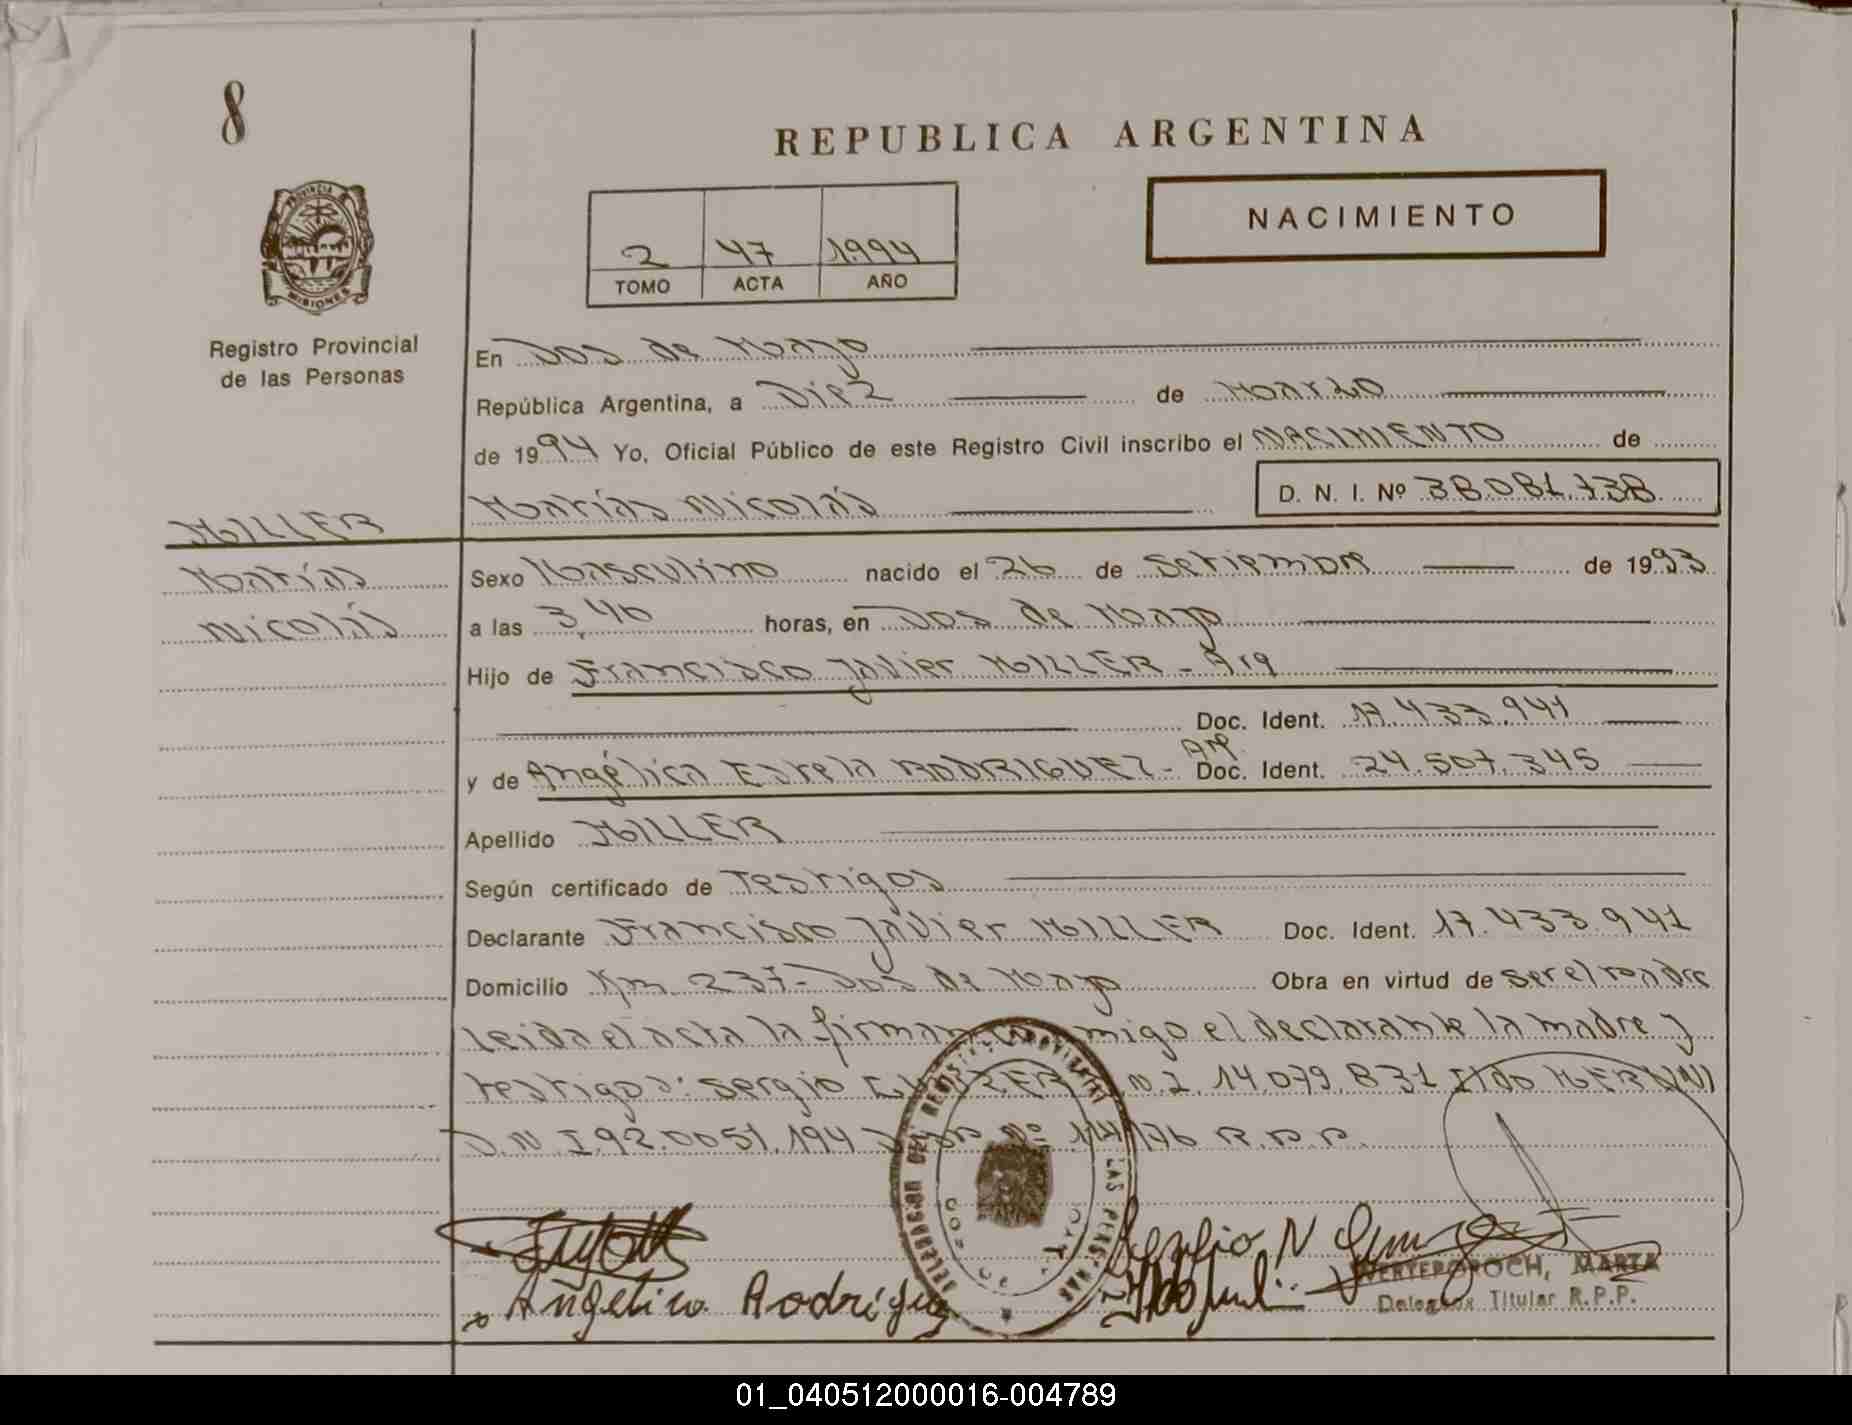 8
REPUBLICA ARGENTINA
PROVINCIA
MISIONES
NACIMIENTO
2 47 1.994
TOMO ACTA AÑO
Registro Provincial
de las Personas
En Dos de Mayo
República Argentina, a Diez de Marzo
de 1994 Yo, Oficial Público de este Registro Civil inscribo el NACIMIENTO de
D. N. I. Nº 38.081.738
MILLER
Matías Nicolás
Matías
Nicolás
Sexo Masculino nacido el 26 de Setiembre de 1993
a las 3,40 horas, en Dos de Mayo
Hijo de Francisco Javier MILLER - Arg
Doc. Ident. 17.433.941
y de Angélica Estela RODRIGUEZ - Arg. Doc. Ident. 24.507.345
Apellido MILLER
Según certificado de Testigos
Declarante Francisco Javier MILLER Doc. Ident. 17.433.941
Domicilio Km. 237 - Dos de Mayo Obra en virtud de ser el padre
Leida el acta la firman conmigo el declarante la madre y
testigos: Sergio 14.079.831 Ildo
D.N.I. 92.0051.194 Nº R.P.P.
DELEGACION DEL REGISTRO PROVINCIAL DE LAS PERSONAS
Angélica Rodríguez
Sergio N
MARTA
Titular R.P.P.
01_040512000016-004789